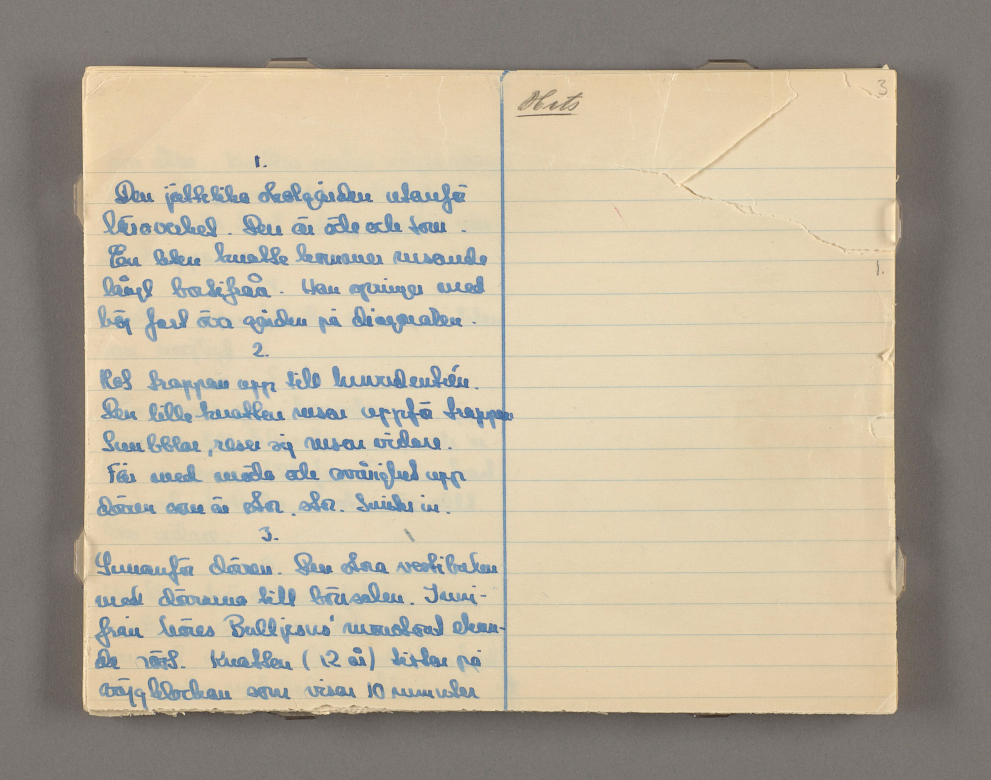 1.
Den jättelika skolgården utanför
läroverket. Den är öde och tom.
En liten knatte kommer rusande
långt bortifrån. Han springer med
hög fart över gården på diagonalen.
2.
Rot trappan upp till
Den lille knatten rusar uppför trappan
Snubblar, reser sig rusar vidare.
Får med möda och svårighet upp
dörren som är stor, stor. Smiter in.
3.
Innanför dörren. Den stora vestibulen
med dörrarna till bönsalen. Inni-
från höres Balljesus' monotont ekan-
de röst. Knatten (12 år) tittar på
väggklockan som visar 10 minuter
Hets
3
1.